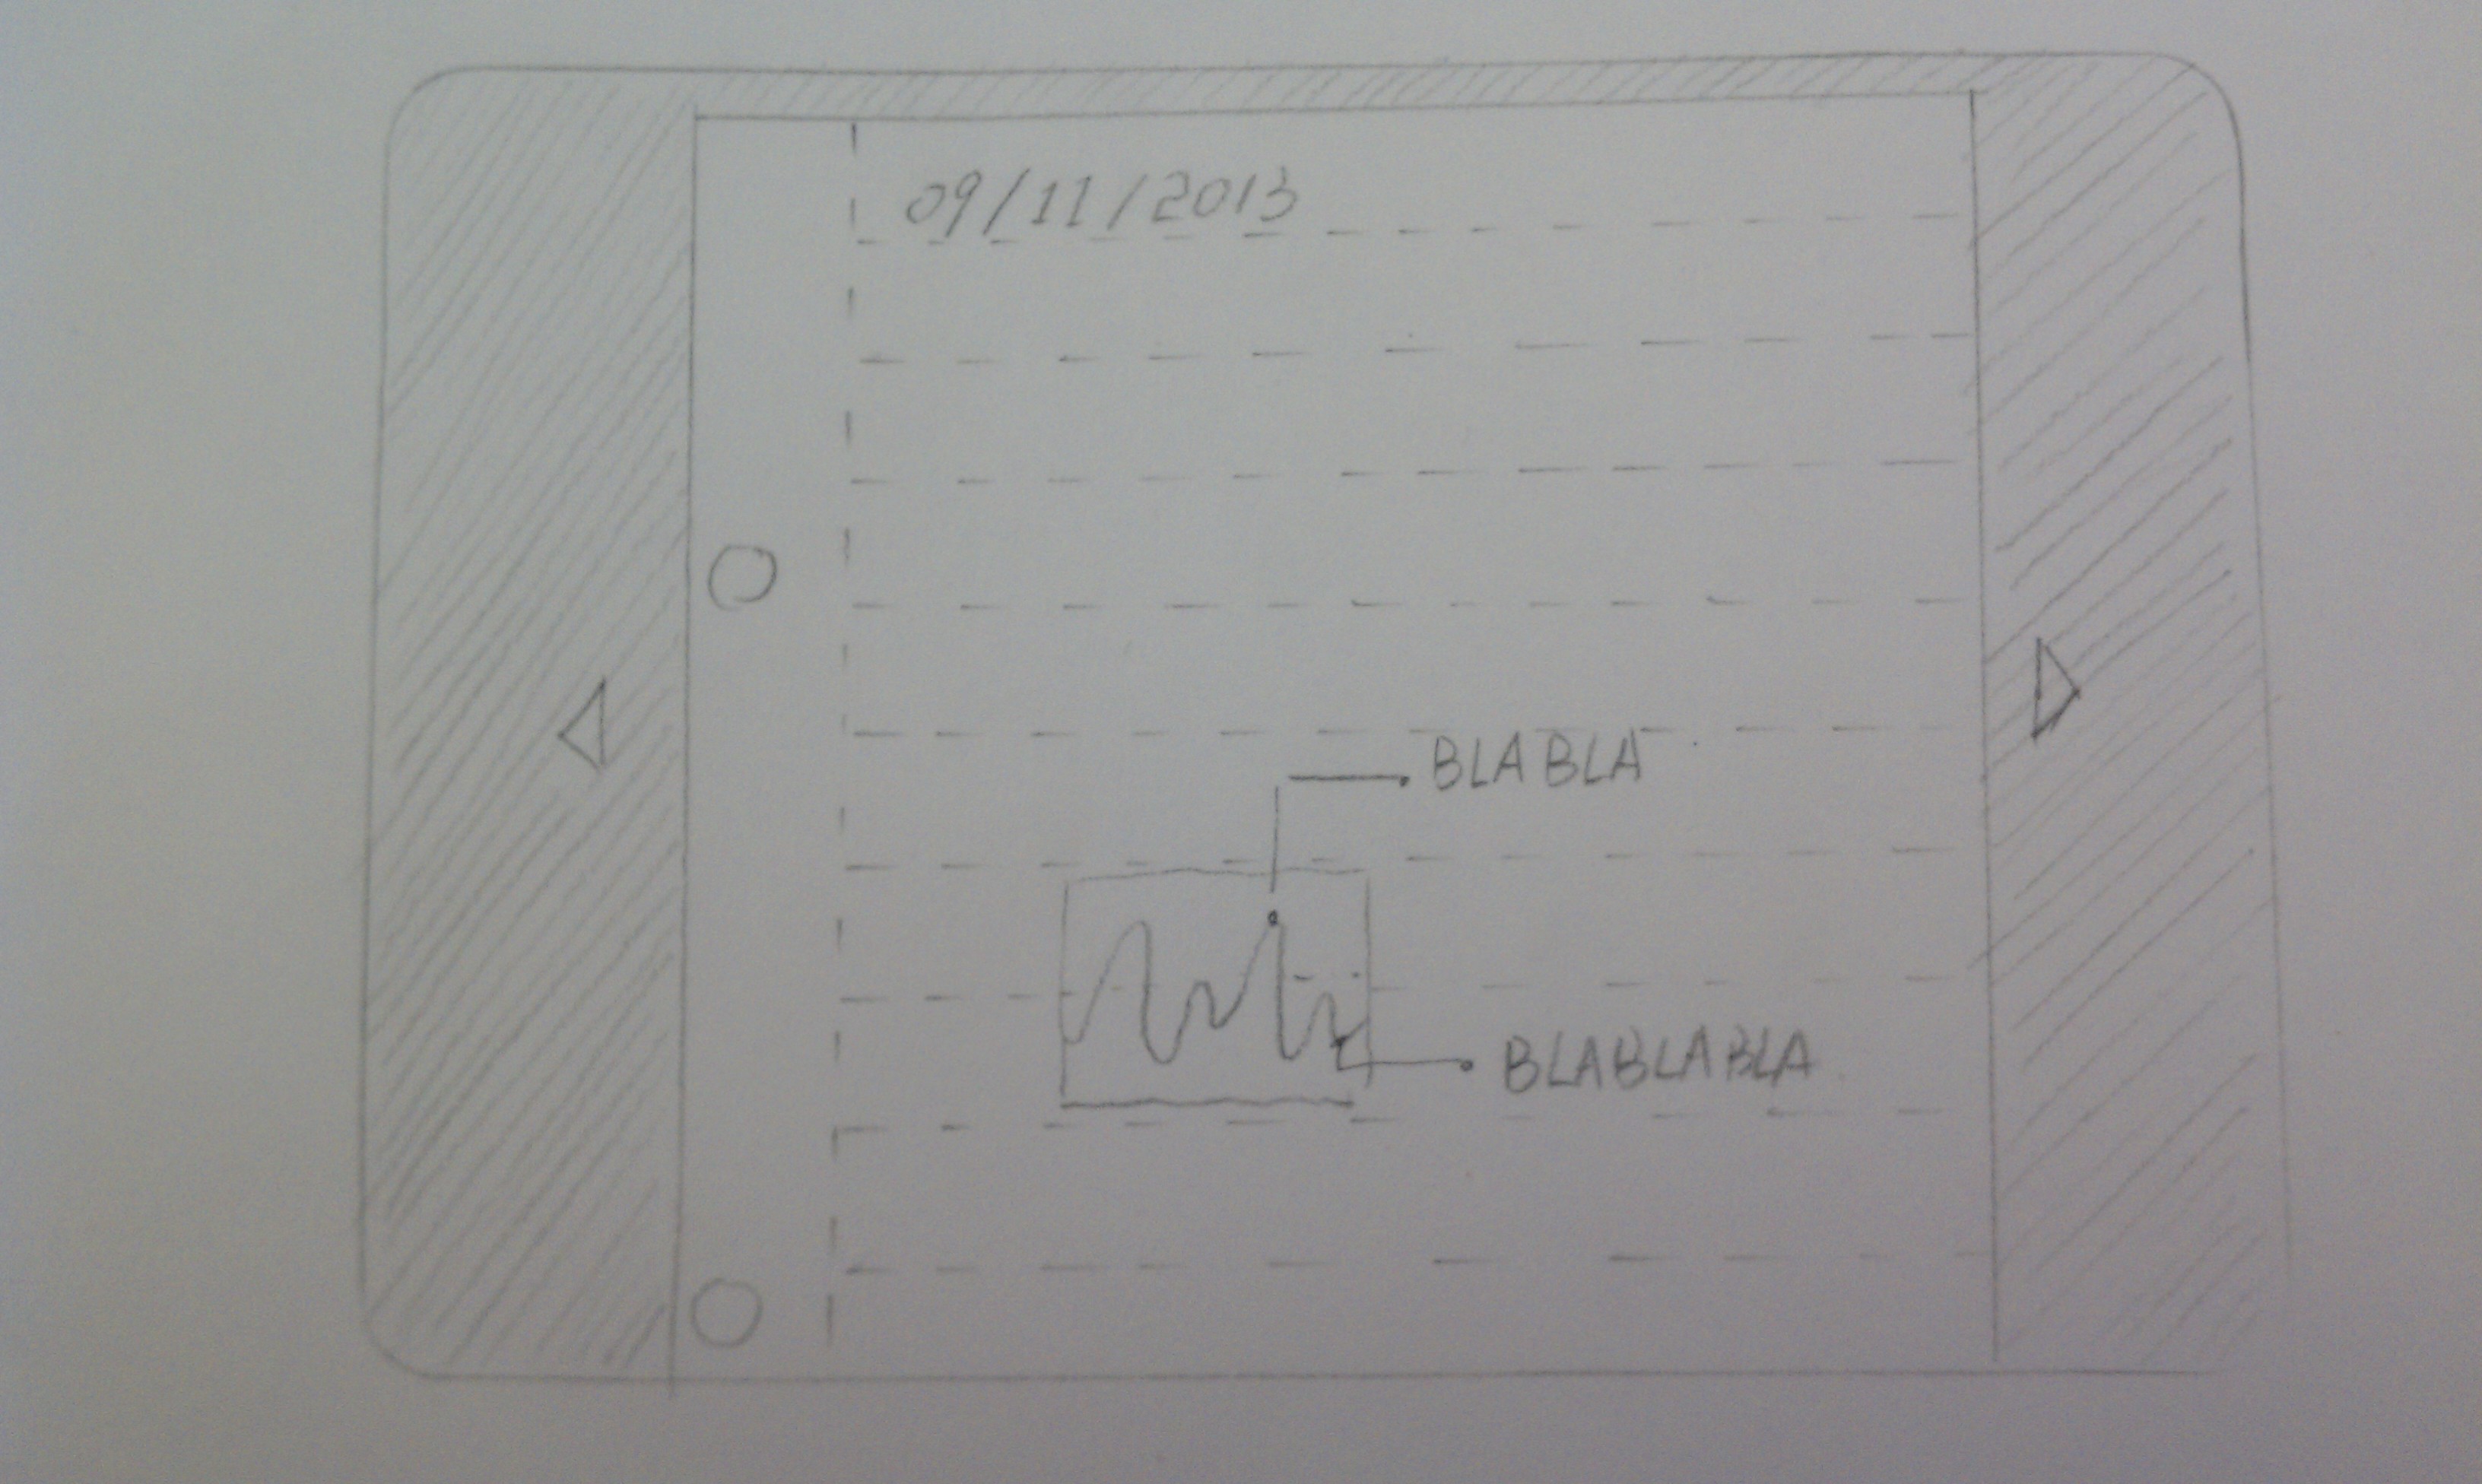 09/11/2013
BLABLA
BLABLABLA